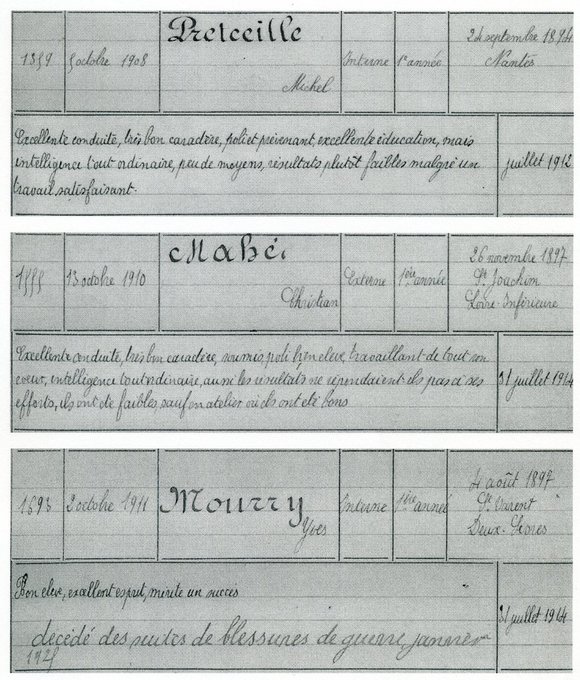 1359 5 octobre 1908 Preteceille Michel Interne 1e année 24 septembre 1894
Nantes
Excellente conduite, très bon caractère, poli et prévenant, excellente éducation, mais
intelligence tout ordinaire, peu de moyens, résultats plutôt faibles malgré un
travail satisfaisant.
juillet 1912
1555 13 octobre 1910 Mahé Christian Externe 1ère année 26 novembre 1897
St Joachim
Loire-Inférieure
Excellente conduite, très bon caractère, soumis, poli bon élève, travaillant de tout son
coeur, intelligence tout ordinaire, aussi les résultats ne répondaient ils pas à ses
efforts, ils ont été faibles sauf en atelier où ils ont été bons
31 juillet 1914
1693 2 octobre 1911 Mourry Yves Interne 1ère année 4 août 1897
St Varent
Deux-Sèvres
Bon élève, excellent esprit, mérite un succès
décédé des suites de blessures de guerre janvier
31 juillet 1914